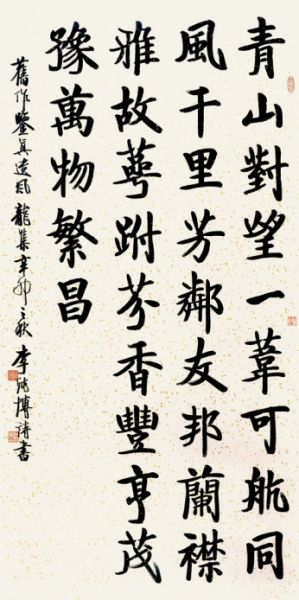 青山對望一葦可航同
風千里芳鄰友邦蘭襟
雅故蕚跗芬香豐亨茂
豫萬物繁昌
舊作鑒真遺風龍集辛卯之秋李博詩書